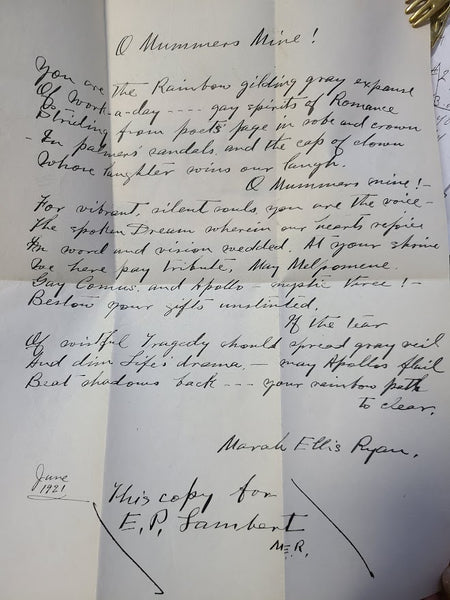 O Mummers Mine!
You are the Rainbow gilding gray expanse
Of Work-a-day ---- gay spirits of Romance
Striding from poets' page in robe and crown
In palmers' sandals, and the cap of clown
Whose laughter wins our laugh.
O Mummers mine!-
For vibrant, silent souls, you are the voice-
The spoken Dream wherein our hearts rejoice
In word and vision wedded. At your shrine
We here pay tribute, May Melpomene.
Gay Comus, and Apollo - mystic three!-
Bestow your gifts unstinted.
If the tear
Of wistful Tragedy should spread gray veil
And dim Life's drama,- may Apollos flail
Beat shadows back --- your rainbow path
to clear.
Marah Ellis Ryan.
June
1921
This copy for
E.P. Lambert
M.E.R.